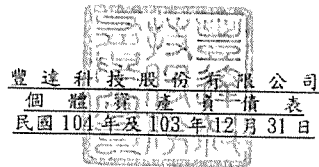 豐達科技股份有限公司
個體資產負債表
民國104年及103年12月31日